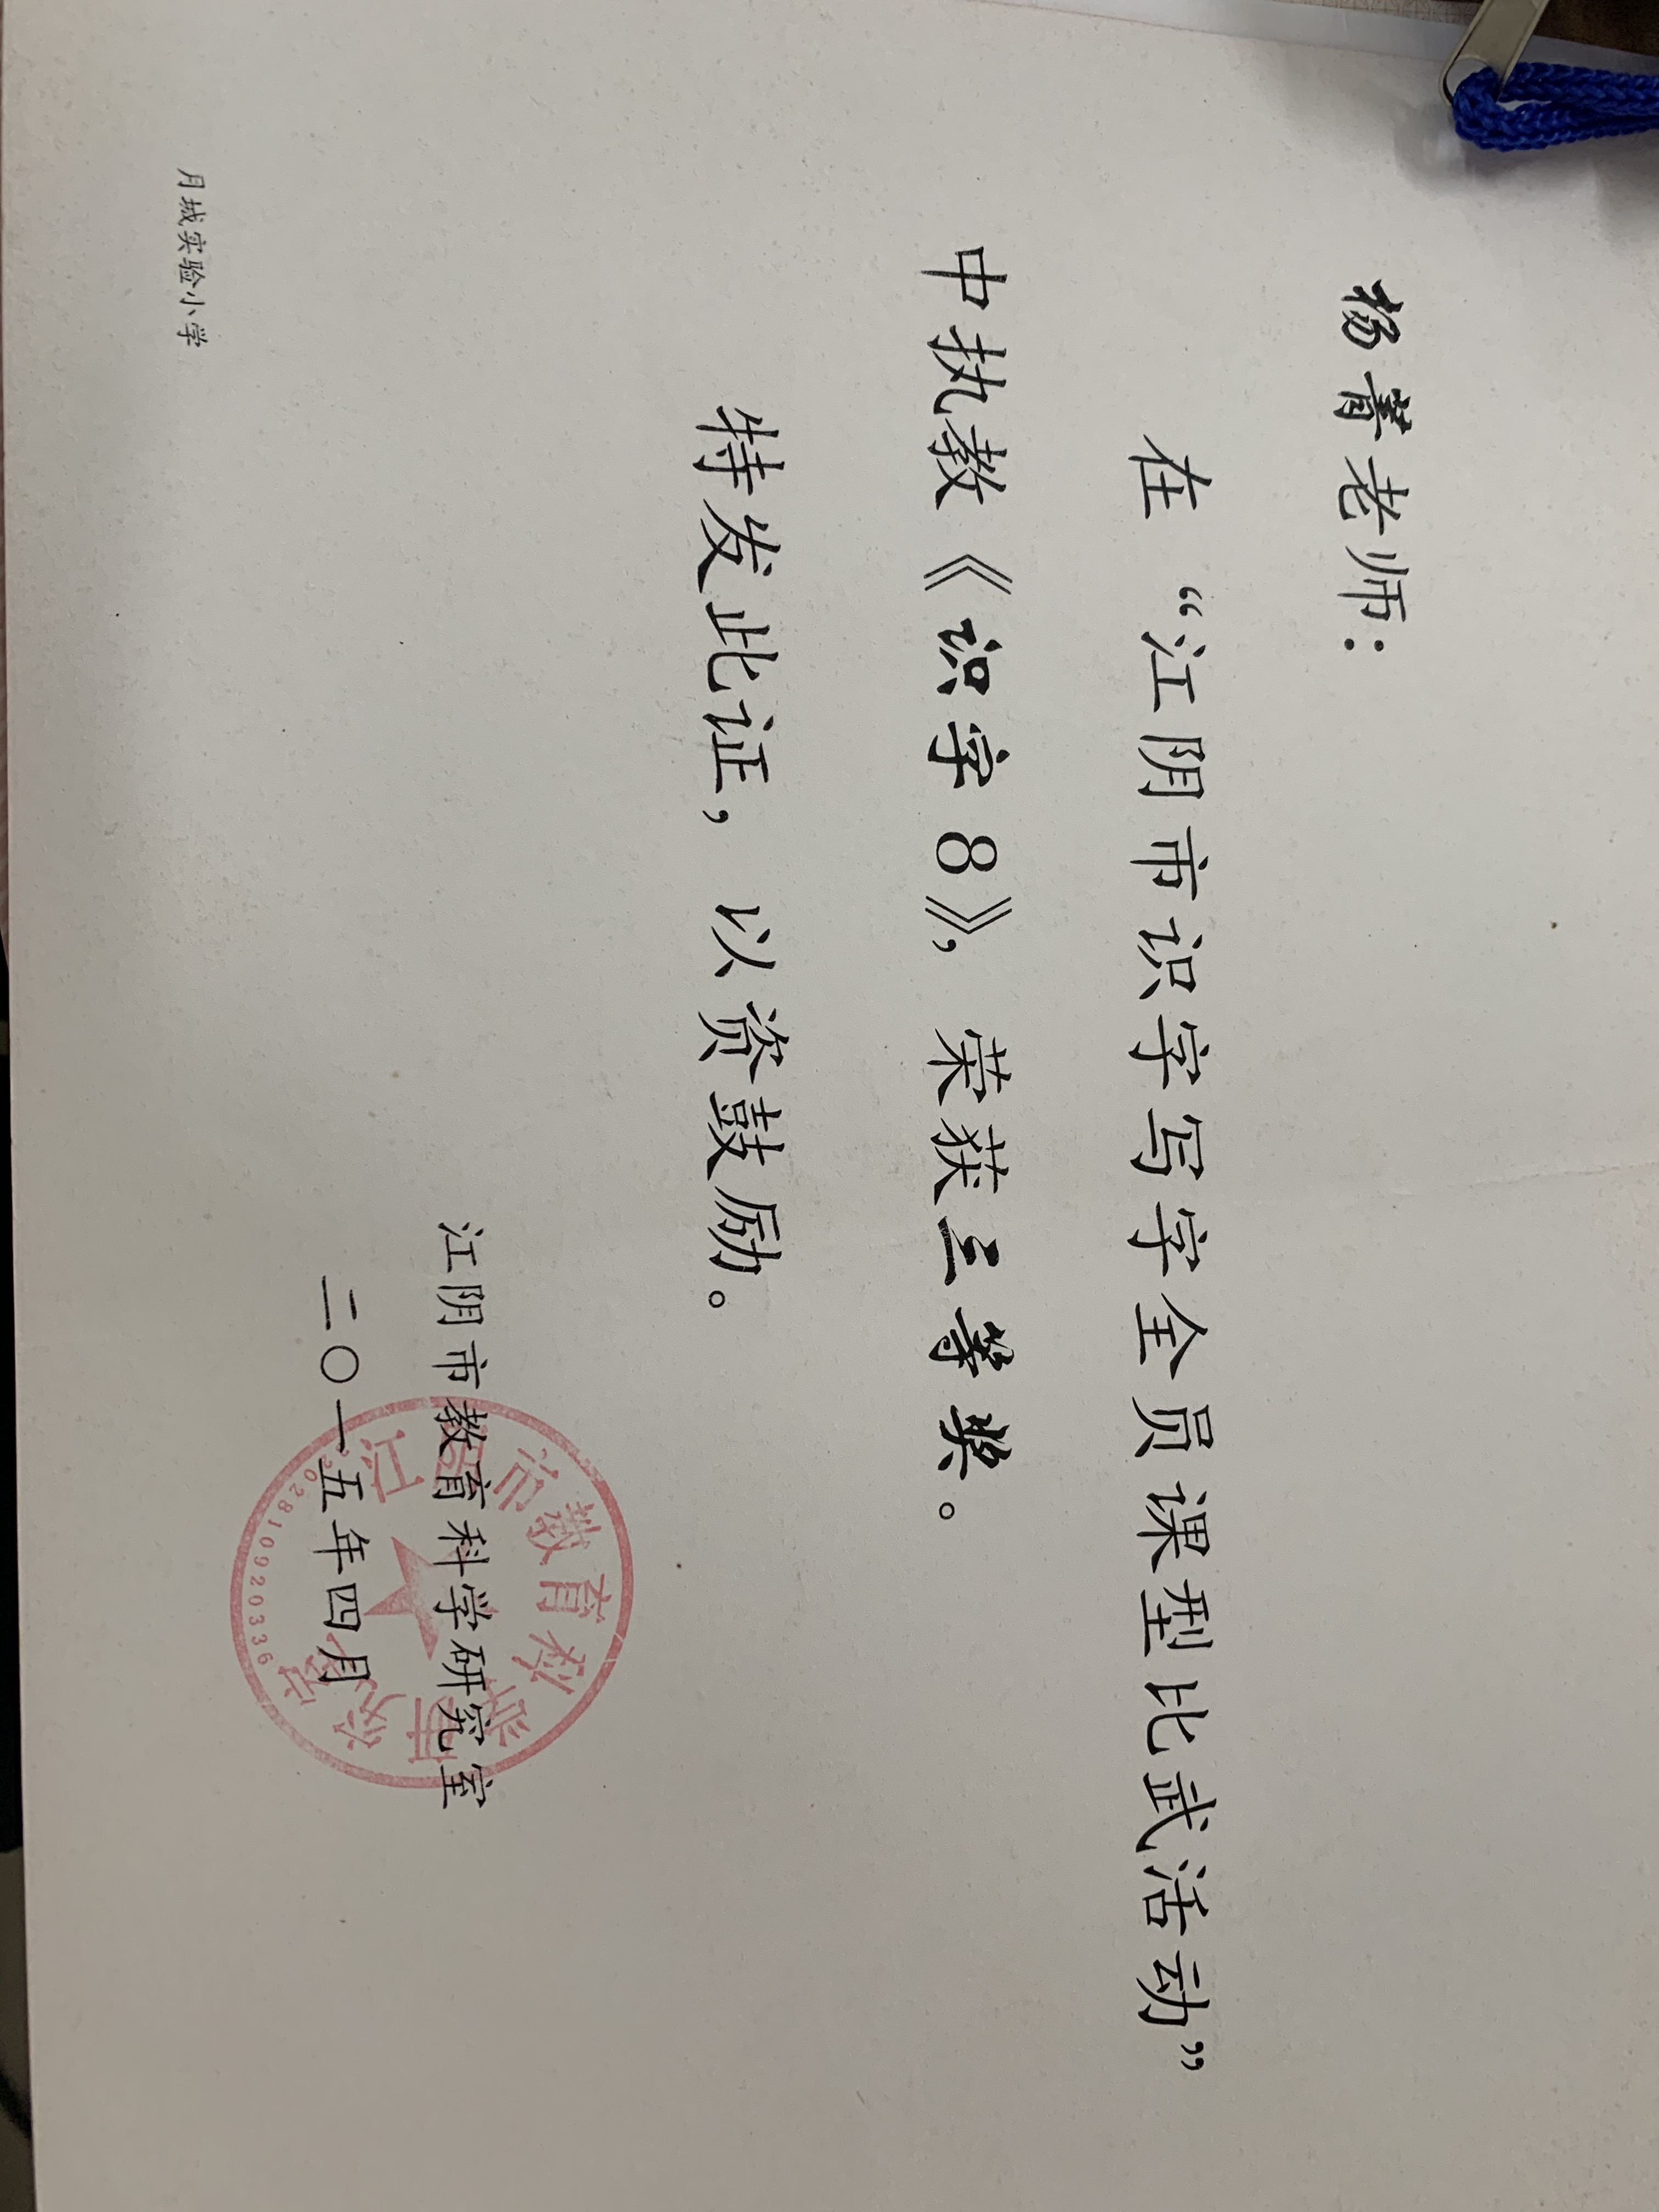 杨菁老师：
在“江阴市识字写字全员课型比武活动”
中执教《识字8》，荣获三等奖。
特发此证，以资鼓励。
江阴市教育科学研究室
二〇一五年四月
江阴市教育科学研究室
月城实验小学